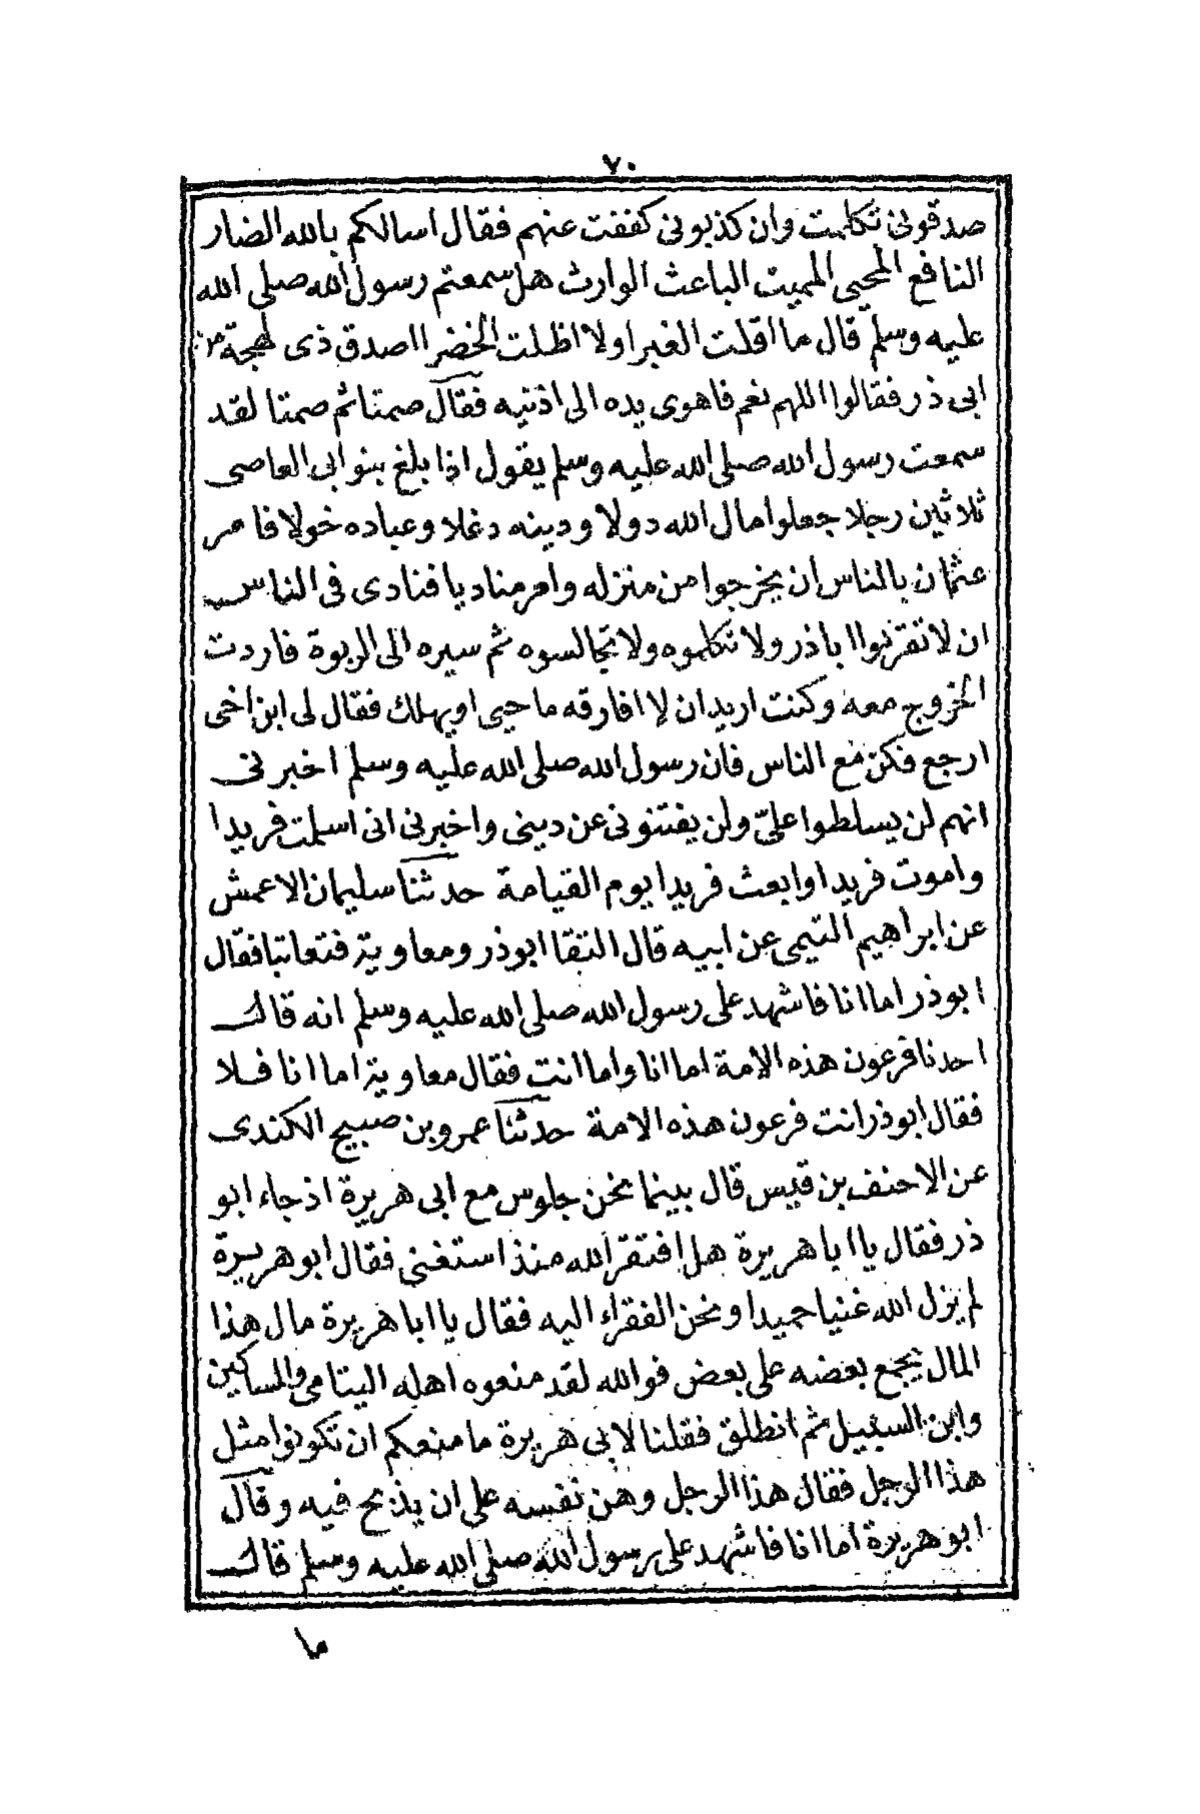 ٧٠
صدقونى تكلمت وان كذبونى كففت عنهم فقال اسالكم بالله الضار
النافع المحيى المميت الباعث الوارث هل سمعتم رسول الله صلى الله
عليه وسلم قال ما اقلت الغبرا ولا اظلت الخضرا اصدق ذى لهجة من
ابى ذر فقالوا اللهم نعم فاهوى يده الى اذنيه فقال صمتا ثم صمتا لقد
سمعت رسول الله صلى الله عليه وسلم يقول اذا بلغ بنو ابى العاصى
ثلاثين رجلا جعلوا مال الله دولا ودينه دغلا وعباده خولا فامر
عثمان بالناس ان يخرجوا من منزله وامر مناديا فنادى فى الناس
ان لا تقربوا اباذر ولا تكلموه ولا تجالسوه ثم سيره الى الربوة فاردت
الخروج معه وكنت اريد ان لا افارقه ما حيى او يهلك فقال لى ابن اخى
ارجع فكن مع الناس فان رسول الله صلى الله عليه وسلم اخبرنى
انهم لن يسلطوا علىّ ولن يفتنونى عن دينى واخبرنى انى اسلمت فريدا
واموت فريدا وابعث فريدا يوم القيامة حدثنا سليمان الاعمش
عن ابراهيم التيمى عن ابيه قال التقا ابوذر ومعاوية فتعاتبا فقال
ابوذر اما انا فاشهد على رسول الله صلى الله عليه وسلم انه قال
احدنا فرعون هذه الامة اما انا واما انت فقال معاوية اما انا فلا
فقال ابوذر انت فرعون هذه الامة حدثنا عمرو بن صبيح الكندى
عن الاحنف بن قيس قال بينما نحن جلوس مع ابى هريرة اذ جاء ابو
ذر فقال يا ابا هريرة هل افتقر الله منذ استغنى فقال ابو هريرة
لم يزل الله غنيا حميدا ونحن الفقراء اليه فقال يا ابا هريرة مال هذا
المال يجمع بعضه على بعض فوالله لقد منعوه اهله اليتامى والمساكين
وابن السبيل ثم انطلق فقلنا لابى هريرة ما منعكم ان تكونوا مثل
هذا الرجل فقال هذا الرجل وهن نفسه على ان يذبح فيه وقال
ابو هريرة اما انا فاشهد على رسول الله صلى الله عليه وسلم قال
ما